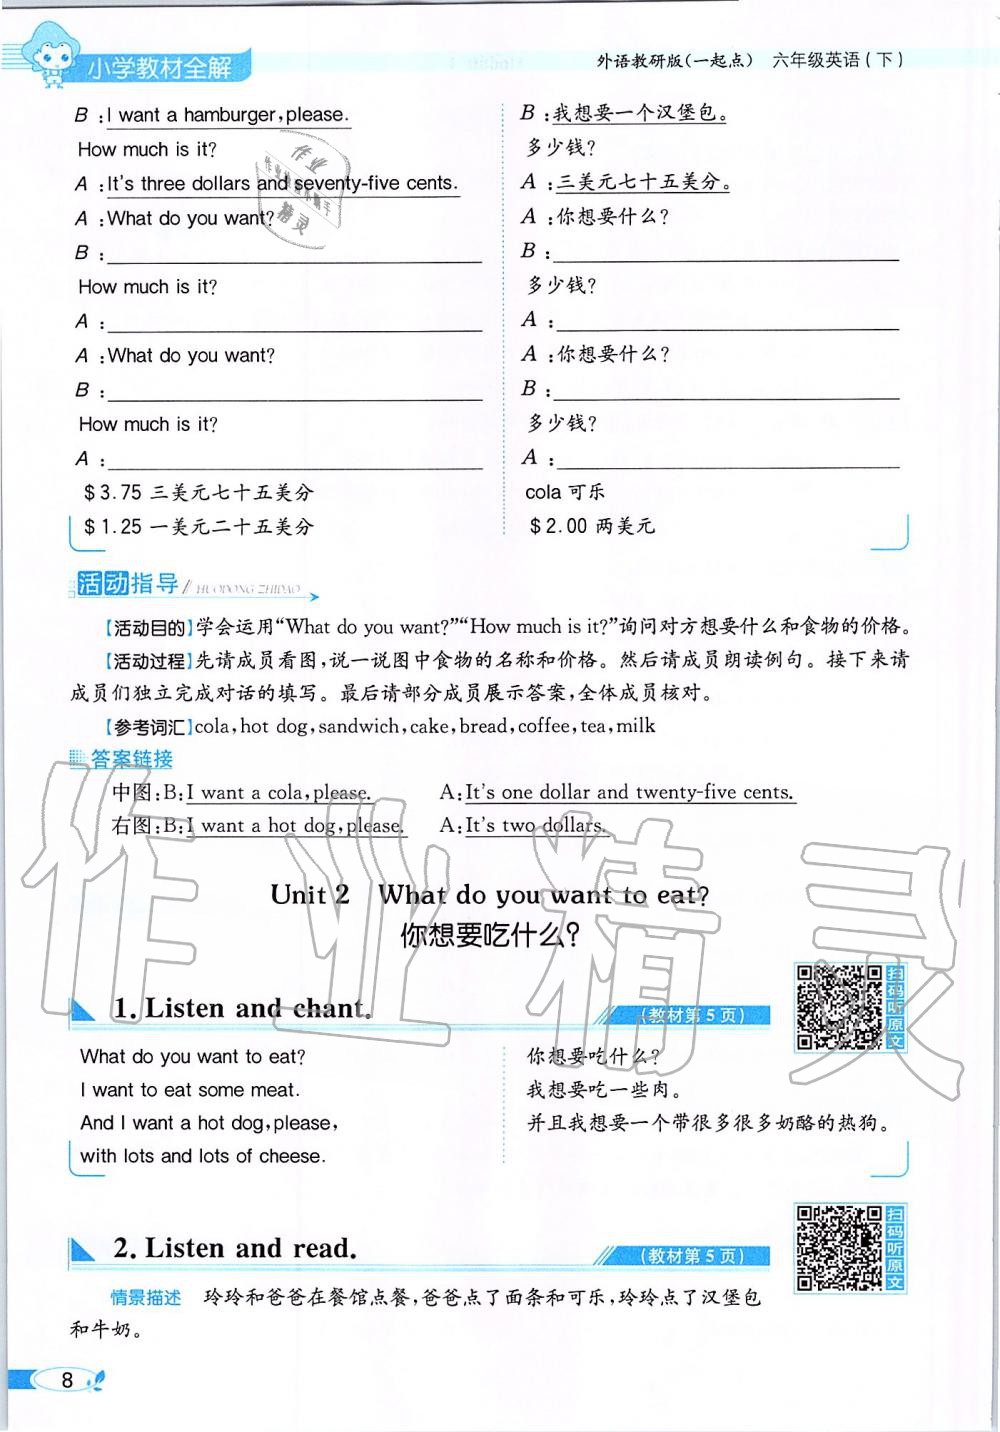 小学教材全解
外语教研版(一起点) 六年级英语(下)
B:I want a hamburger,please.
How much is it?
A:It's three dollars and seventy-five cents.
A:What do you want?
B:
How much is it?
A:
A:What do you want?
B:
How much is it?
A:
$3.75 三美元七十五美分
$1.25 一美元二十五美分
B:我想要一个汉堡包。
多少钱?
A:三美元七十五美分。
A:你想要什么?
B:
多少钱?
A:
A:你想要什么?
B:
多少钱?
A:
cola 可乐
$2.00 两美元
活动指导 HUODONG ZHIDAO
【活动目的】学会运用“What do you want?”“How much is it?”询问对方想要什么和食物的价格。
【活动过程】先请成员看图,说一说图中食物的名称和价格。然后请成员朗读例句。接下来请
成员们独立完成对话的填写。最后请部分成员展示答案,全体成员核对。
【参考词汇】cola,hot dog,sandwich,cake,bread,coffee,tea,milk
答案链接
中图:B:I want a cola,please. A:It's one dollar and twenty-five cents.
右图:B:I want a hot dog,please. A:It's two dollars.
Unit 2 What do you want to eat?
你想要吃什么?
1. Listen and chant.
(教材第5页)
扫码听原文
What do you want to eat?
I want to eat some meat.
And I want a hot dog,please,
with lots and lots of cheese.
你想要吃什么?
我想要吃一些肉。
并且我想要一个带很多很多奶酪的热狗。
2. Listen and read.
(教材第5页)
扫码听原文
情景描述 玲玲和爸爸在餐馆点餐,爸爸点了面条和可乐,玲玲点了汉堡包
和牛奶。
8
作业精灵